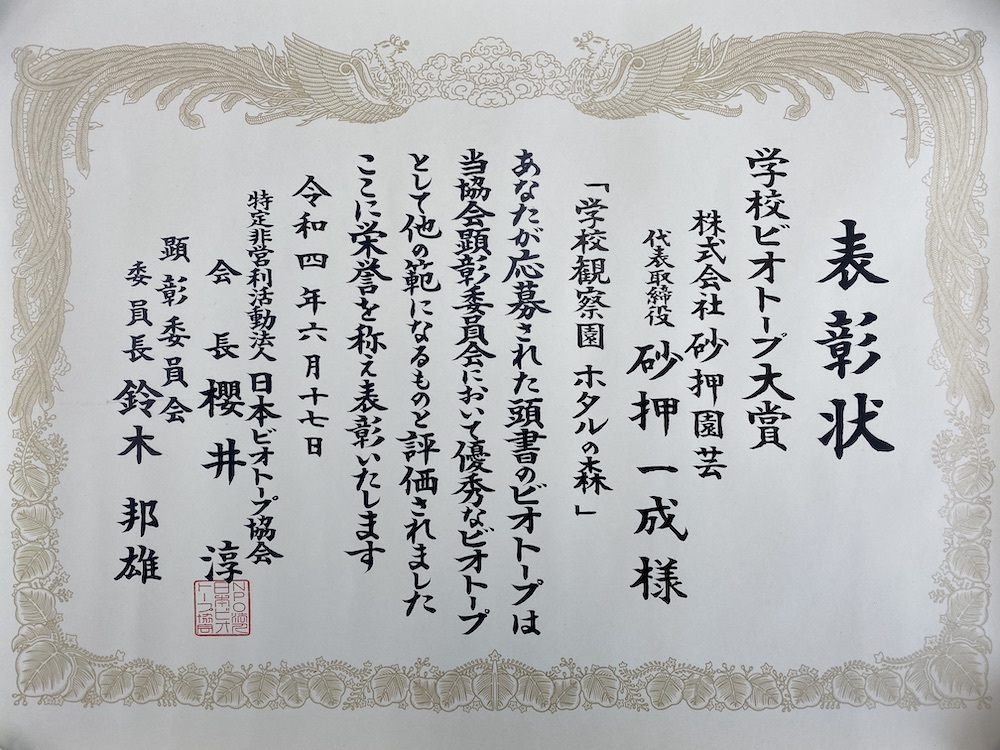 表彰状
学校ビオトープ大賞
株式会社 砂押園芸
代表取締役 砂押 一成 様
「学校観察園 ホタルの森」
あなたが応募された頭書のビオトープは
当協会顕彰委員会において優秀なビオトープ
として他の範になるものと評価されました
ここに栄誉を称え表彰いたします
令和四年六月十七日
特定非営利活動法人 日本ビオトープ協会
会長 櫻井 淳
顕彰委員会
委員長 鈴木 邦雄